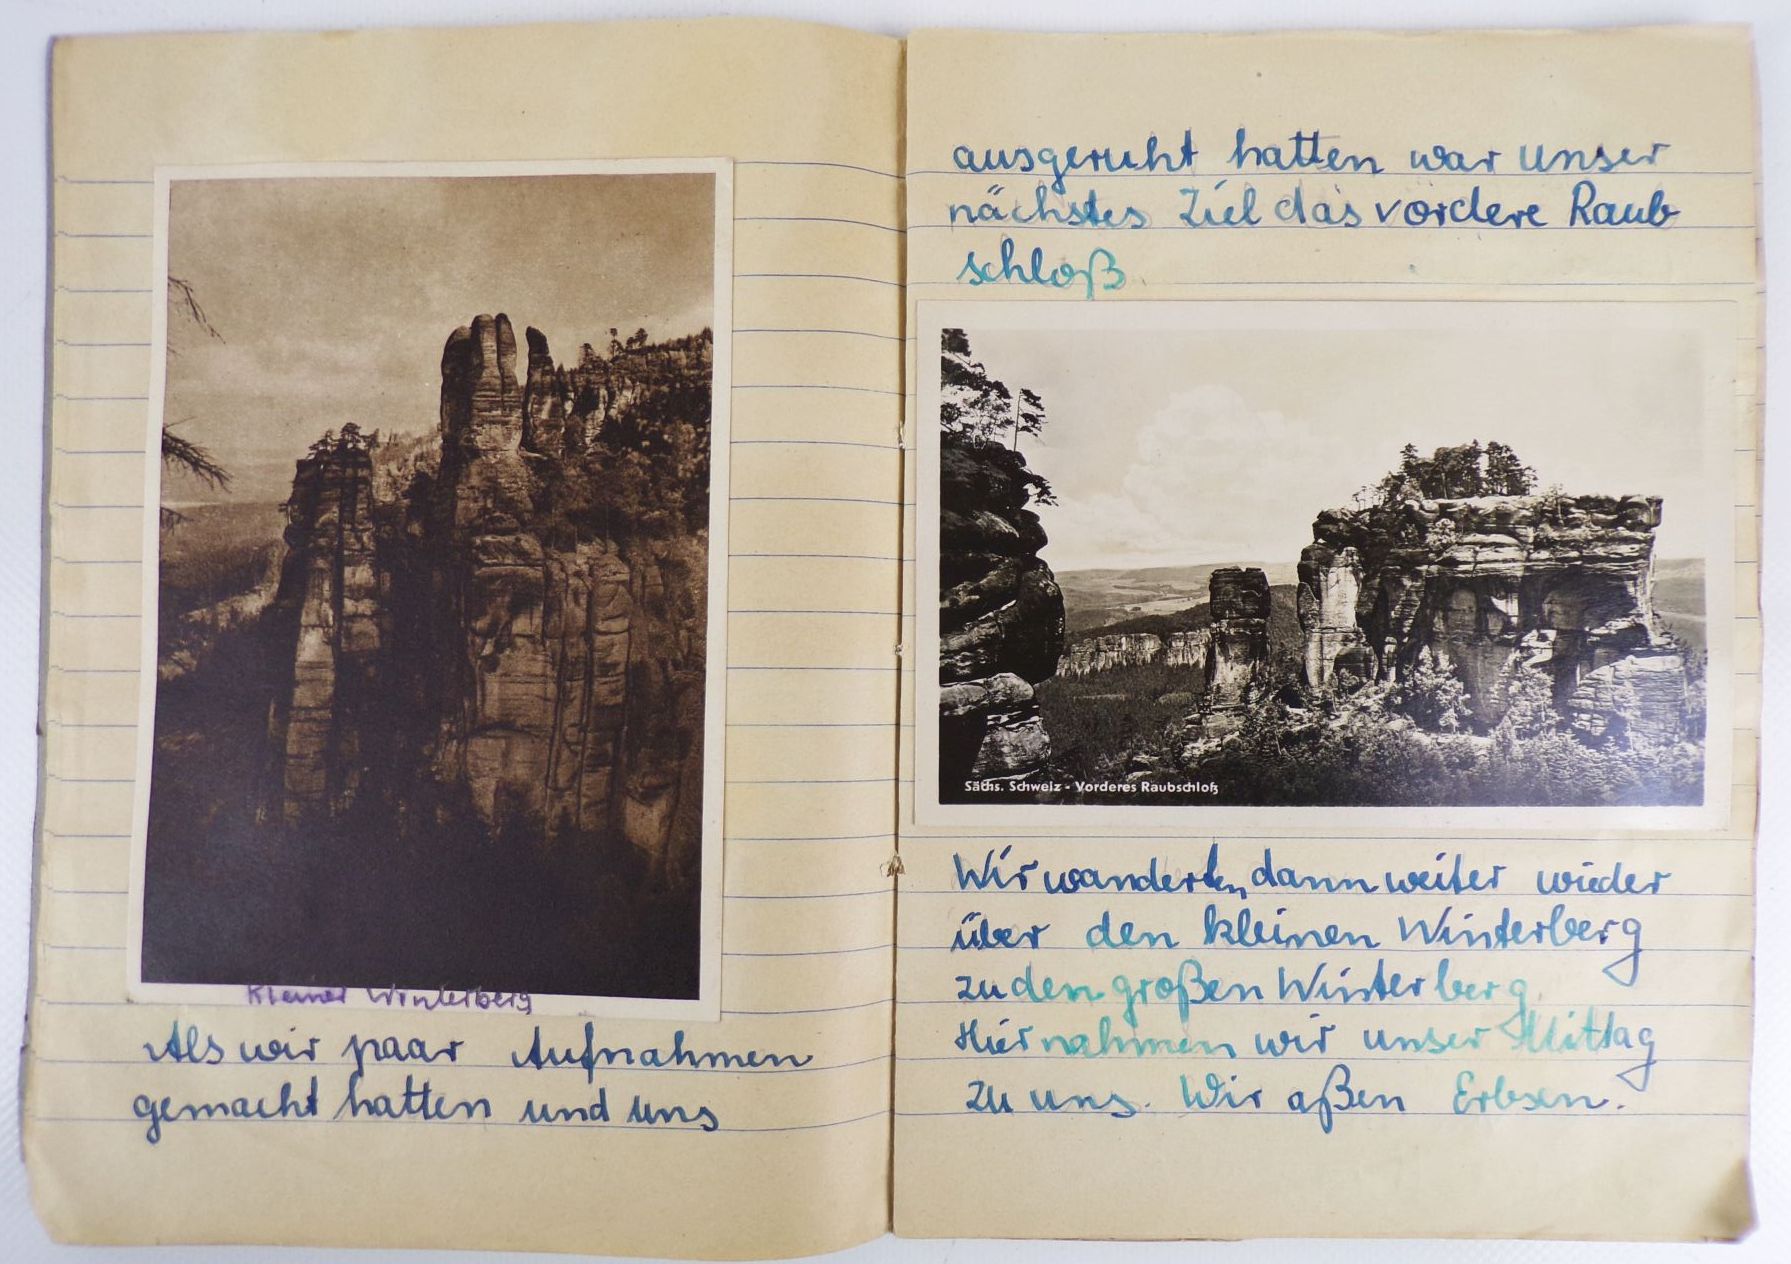 Kleiner Winterberg
Als wir paar Aufnahmen
gemacht hatten und uns
ausgeruht hatten war unser
nächstes Ziel das vordere Raub
schloß
Sächs. Schweiz - Vorderes Raubschloß
Wir wanderten dann weiter wieder
über den kleinen Winterberg
zu den großen Winterberg.
Hier nahmen wir unser Mittag
zu uns. Wir aßen Erbsen.